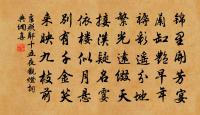 錦里開芳宴
蘭缸艷早年
縟彩遙分地
繁光遠綴天
接漢疑星落
依樓似月懸
別有千金笑
來映九枝前
十五夜觀燈詞